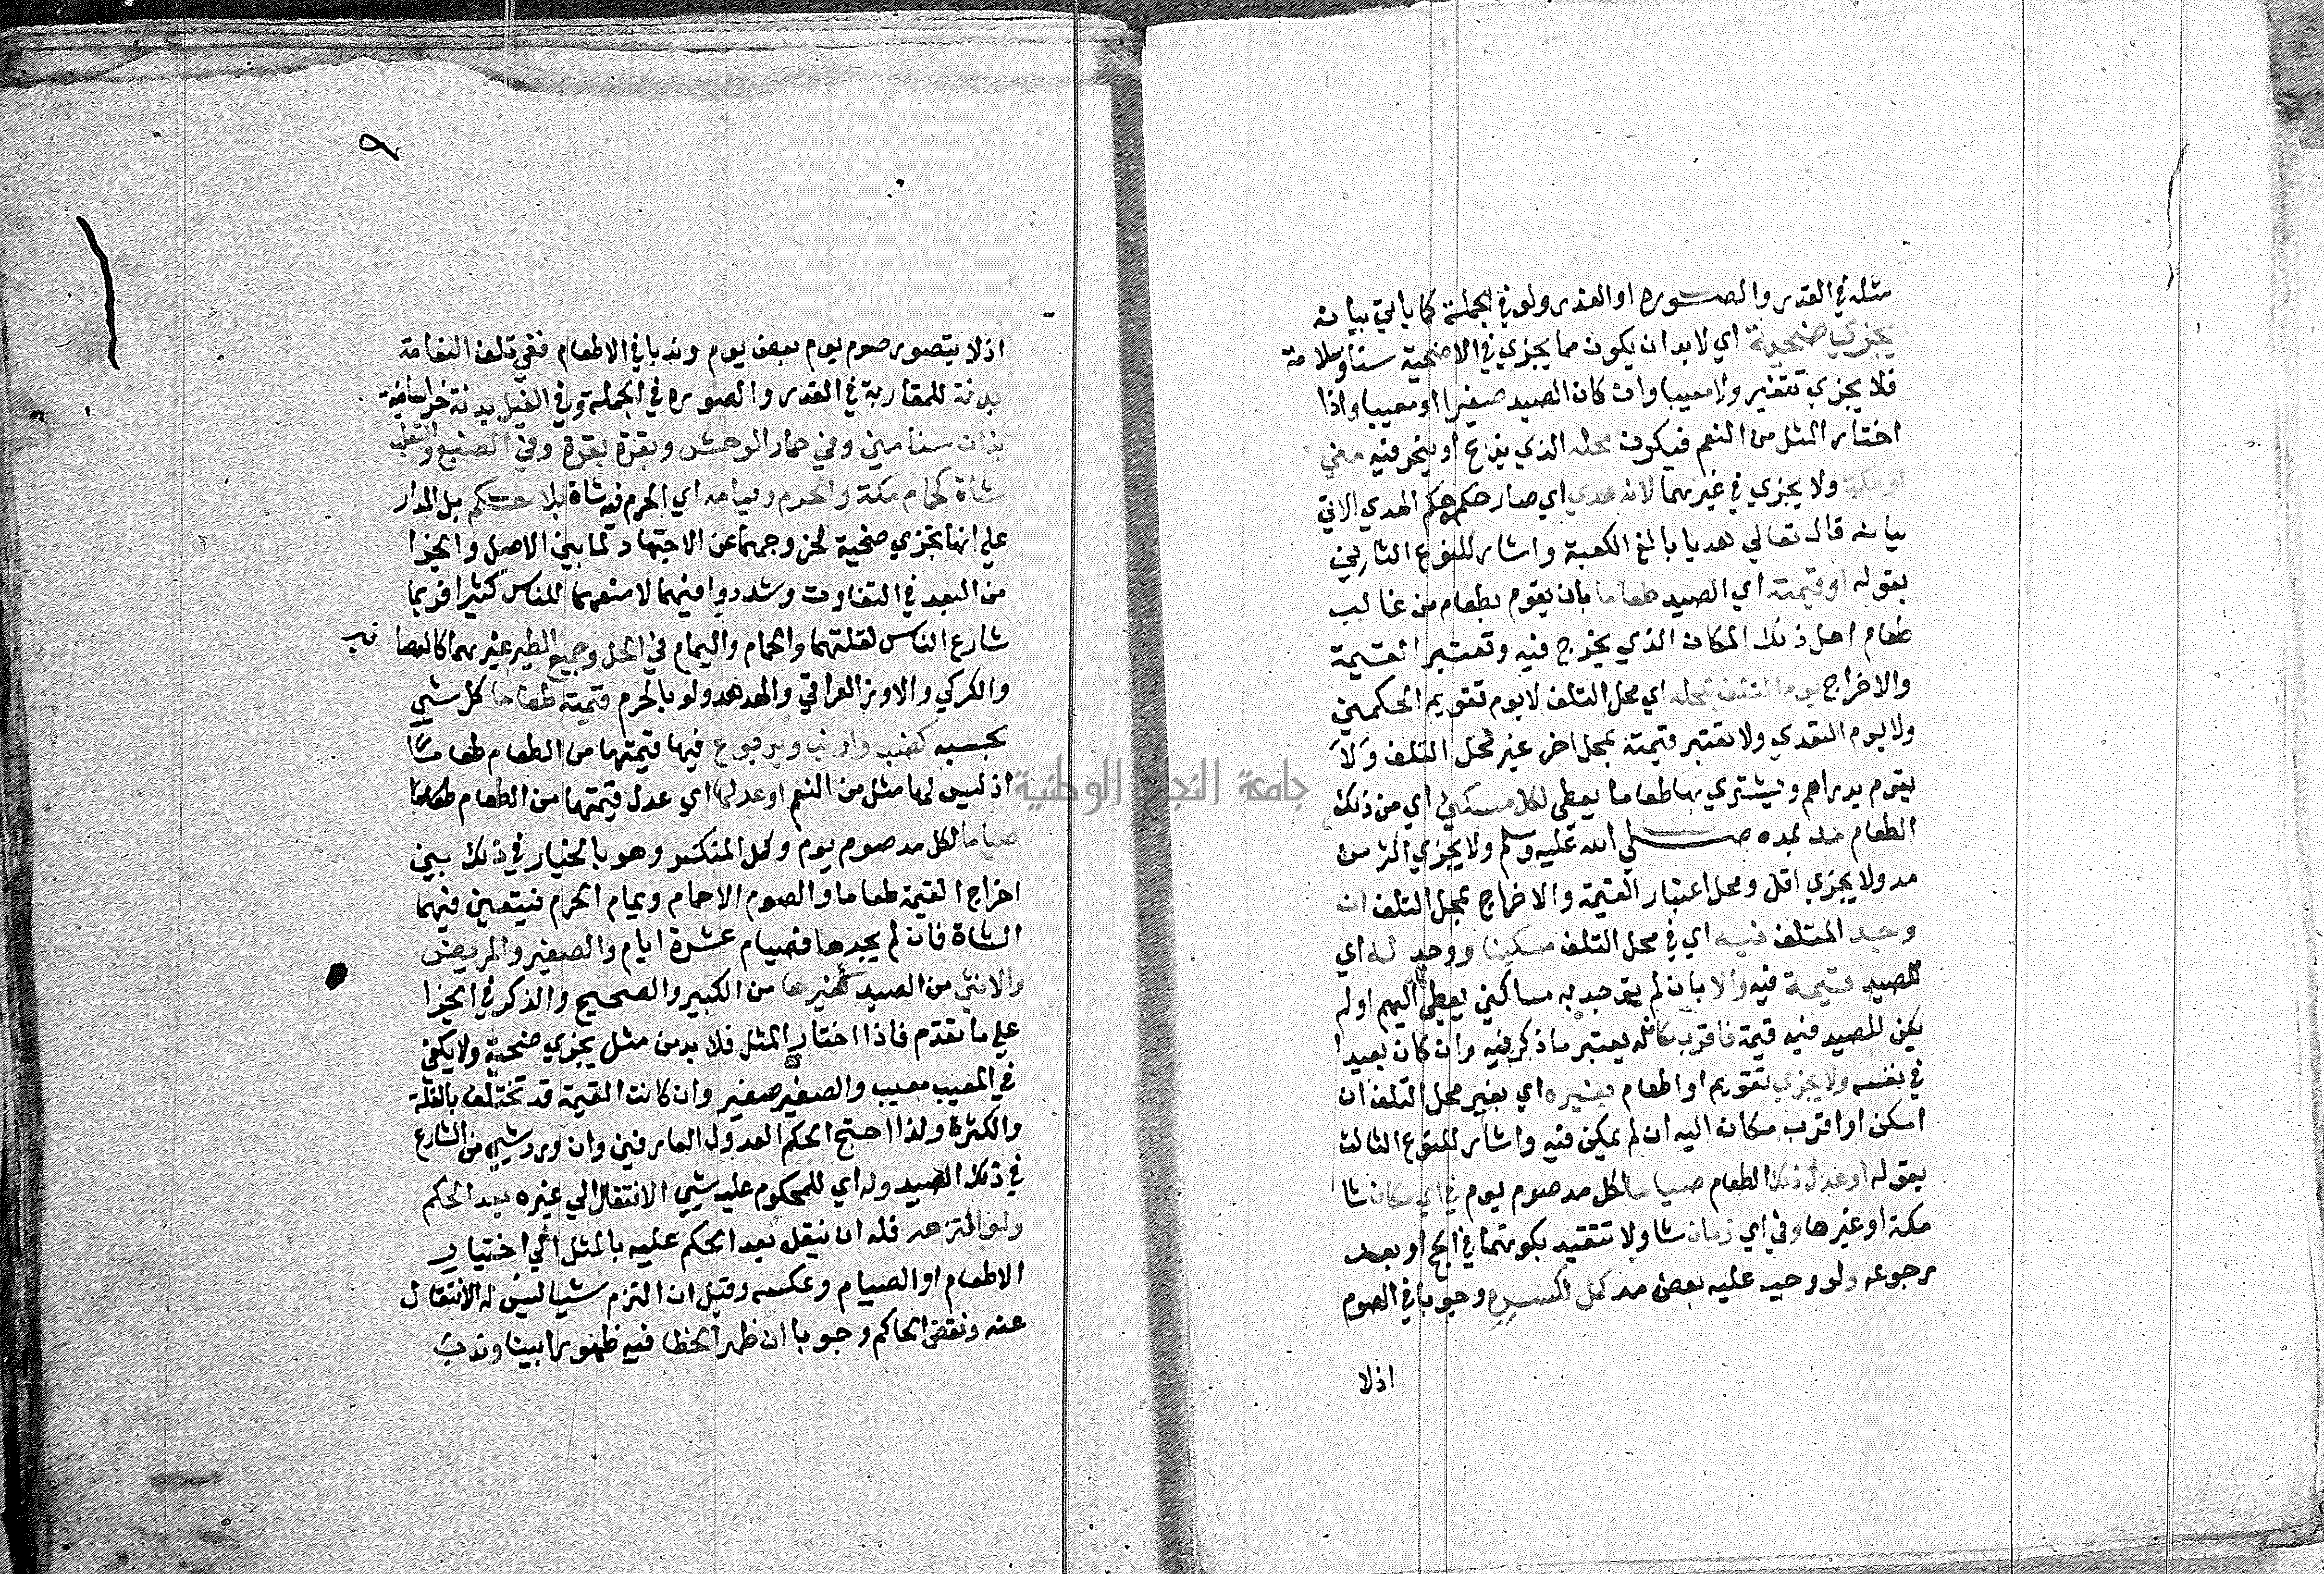 مثله في القدر والصورة او القدر ولو في الجملة كما ياتي بيانه
يجزي ضحية اي لا بد ان يكون مما يجزي في الاضحية سنا وسلامة
فلا يجزي صغير ولا معيبا وان كان الصيد صغيرا او معيبا واذا
اختار المثل من النعم فيكون محله الذي يذبح او ينحر فيه مني
او مكة ولا يجزي في غيرهما لانه هدي اي صار حكمه حكم الهدي الاتي
بيانه قال تعالي هديا بالغ الكعبة واشار للنوع الثاني
بقوله او قيمته اي الصيد طعاما بان يقوم بطعام من غالب
طعام اهل ذلك المكان الذي يخرج فيه وتعتبر القيمة
والاخراج يوم التلف بمحله اي محل التلف لا يوم تقويم الحكمين
ولا يوم التعدي ولا تعتبر قيمته بمحل اخر غير محل التلف ولا
يقوم بدراهم ويشتري بها طعاما يعطي لكل مسكين اي من ذلك
الطعام مد بمده صلي الله عليه وسلم ولا يجزي اكثر من
مد ولا يجزي اقل ومحل اعتبار القيمة والاخراج بمحل التلف ان
وجد المتلف فيه اي في محل التلف مسكينا ووجد له اي
للصيد قيمة فيه والا بان لم يوجد به مساكين يعطي اليهم او لم
يكن للصيد فيه قيمة فاقرب مكان له يعتبر ما ذكر فيه وان كان بعيدا
في نفسه ولا يجزي تقويم او اطعام بغيره اي بغير محل التلف ان
امكن او اقرب مكان اليه ان لم يمكن فيه واشار للنوع الثالث
بقوله او عدل ذلك الطعام صياما لكل مد صوم يوم في اي مكان شا
مكة او غيرها وفي اي زمان شا ولا تتقيد بكونها في الحج او بعد
رجوعه ولو وجب عليه بعض مد كمل لكسره وجوبا في الصوم
اذلا
٩
اذلا يتصور صوم يوم بعض يوم وندبا في الاطعام ففي تلف النعامة
بدنة للمقاربة في القدر والصورة في الجملة وفي الفيل بدنة خراسانية
بذات سنامين وفي حمار الوحش وبقرة بقرة وفي الضبع والثعلب
شاة كحمام مكة والحرم ويمامه اي الحرم فيه شاة بلا حكم بل المدار
علي انها تجزي ضحية لخروجهما عن الاجتهاد لما بين الاصل والجزا
من البعد في التفاوت وشددوا فيهما لا منهما للناس كثيرا فربما
شارع الناس لقتلهما والحمام واليمام في الحل وجميع الطير غيرهما كالعصافير
والكركي والاوز العراقي والهدهد ولو بالحرم قيمته طعاما كل شي
بحسبه كضب وارنب ويربوع فيها قيمتها من الطعام طعاما
اذ ليس لها مثل من النعم او عدلها اي عدل قيمتها من الطعام طعاما
صياما لكل مد صوم يوم وكمل المنكسر وهو بالخيار في ذلك بين
اخراج القيمة طعاما والصوم الا حمام ويمام الحرم فيتعين فيهما
الشاة فان لم يجدها فصيام عشرة ايام والصغير والمريض
والانثي من الصيد كغيرها من الكبير والصحيح والذكر في الجزا
علي ما تقدم فاذا اختار المثل فلا بد من مثل يجزي ضحية ولا يكفي
في المعيب معيب والصغير صغير وان كانت القيمة قد تختلف بالقلة
والكثرة ولذا احتج الحكم العدول العارفين وان ورد شي من الشارع
في ذلك الصيد وله اي للمحكوم عليه شي الانتقال الي غيره بعد الحكم
ولو التزمه فله ان ينقل بعد الحكم عليه بالمثل الي اختيار
الاطعام او الصيام وعكسه وقيل ان التزم شيا ليس له الانتقال
عنه ونقض الحكم وجوبا ان ظهر الخطا فيه ظهورا بينا وندب
جامعة النجاح الوطنية